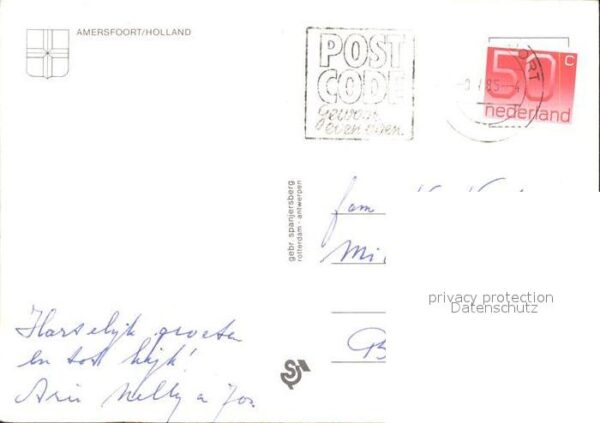 AMERSFOORT/HOLLAND
POST
CODE
gewoon
even doen.
ORT
85
50 c
nederland
gebr. spanjersberg
rotterdam - antwerpen
fam
Mi
B
privacy protection
Datenschutz
Hartelijk groeten
en tot kijk!
Arie Nelly en Jos